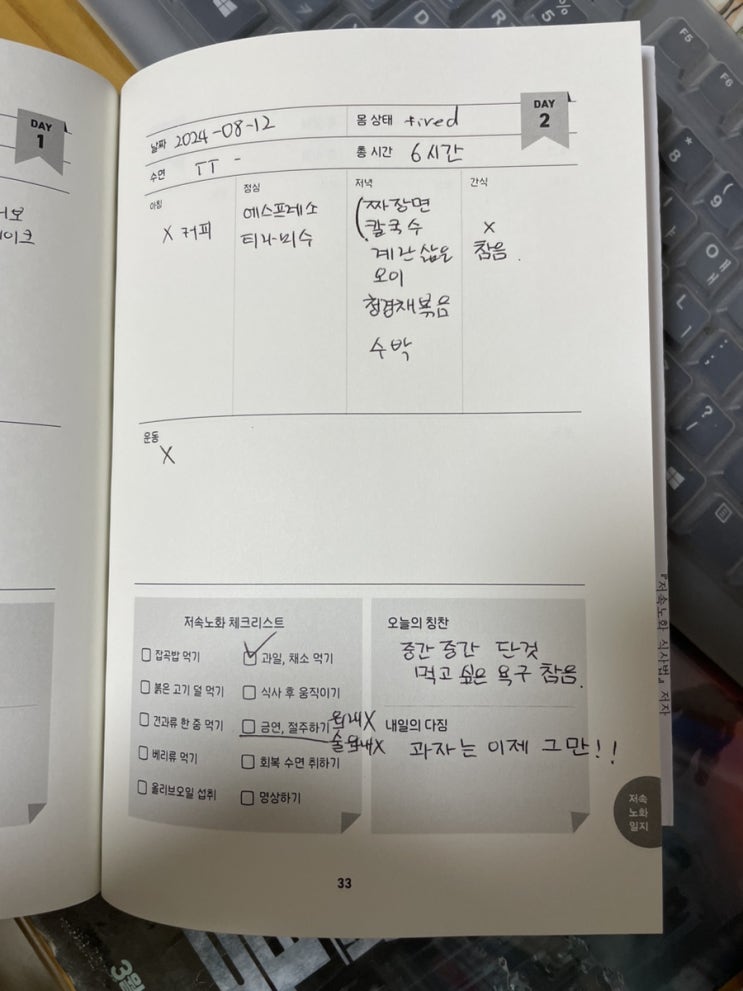 DAY
1
DAY
2
날짜 2024-08-12
몸 상태 tired
수면 TT -
총 시간 6시간
아침
X 커피
점심
에스프레소
티라미수
저녁
(짜장면
칼국수
계란 삶은
오이
청경채볶음
수박
간식
X
참음.
운동
X
저속노화 체크리스트
잡곡밥 먹기
붉은 고기 덜 먹기
견과류 한 줌 먹기
베리류 먹기
올리브오일 섭취
과일, 채소 먹기
식사 후 움직이기
금연, 절주하기 원래X
술 원래X
회복 수면 취하기
명상하기
오늘의 칭찬
중간 중간 단것
먹고 싶은 욕구 참음.
내일의 다짐
과자는 이제 그만!!
저속
노화
일지
33
『저속노화 식사법』 저자
F5
F6
5
%
D
8
9
L
?
3월